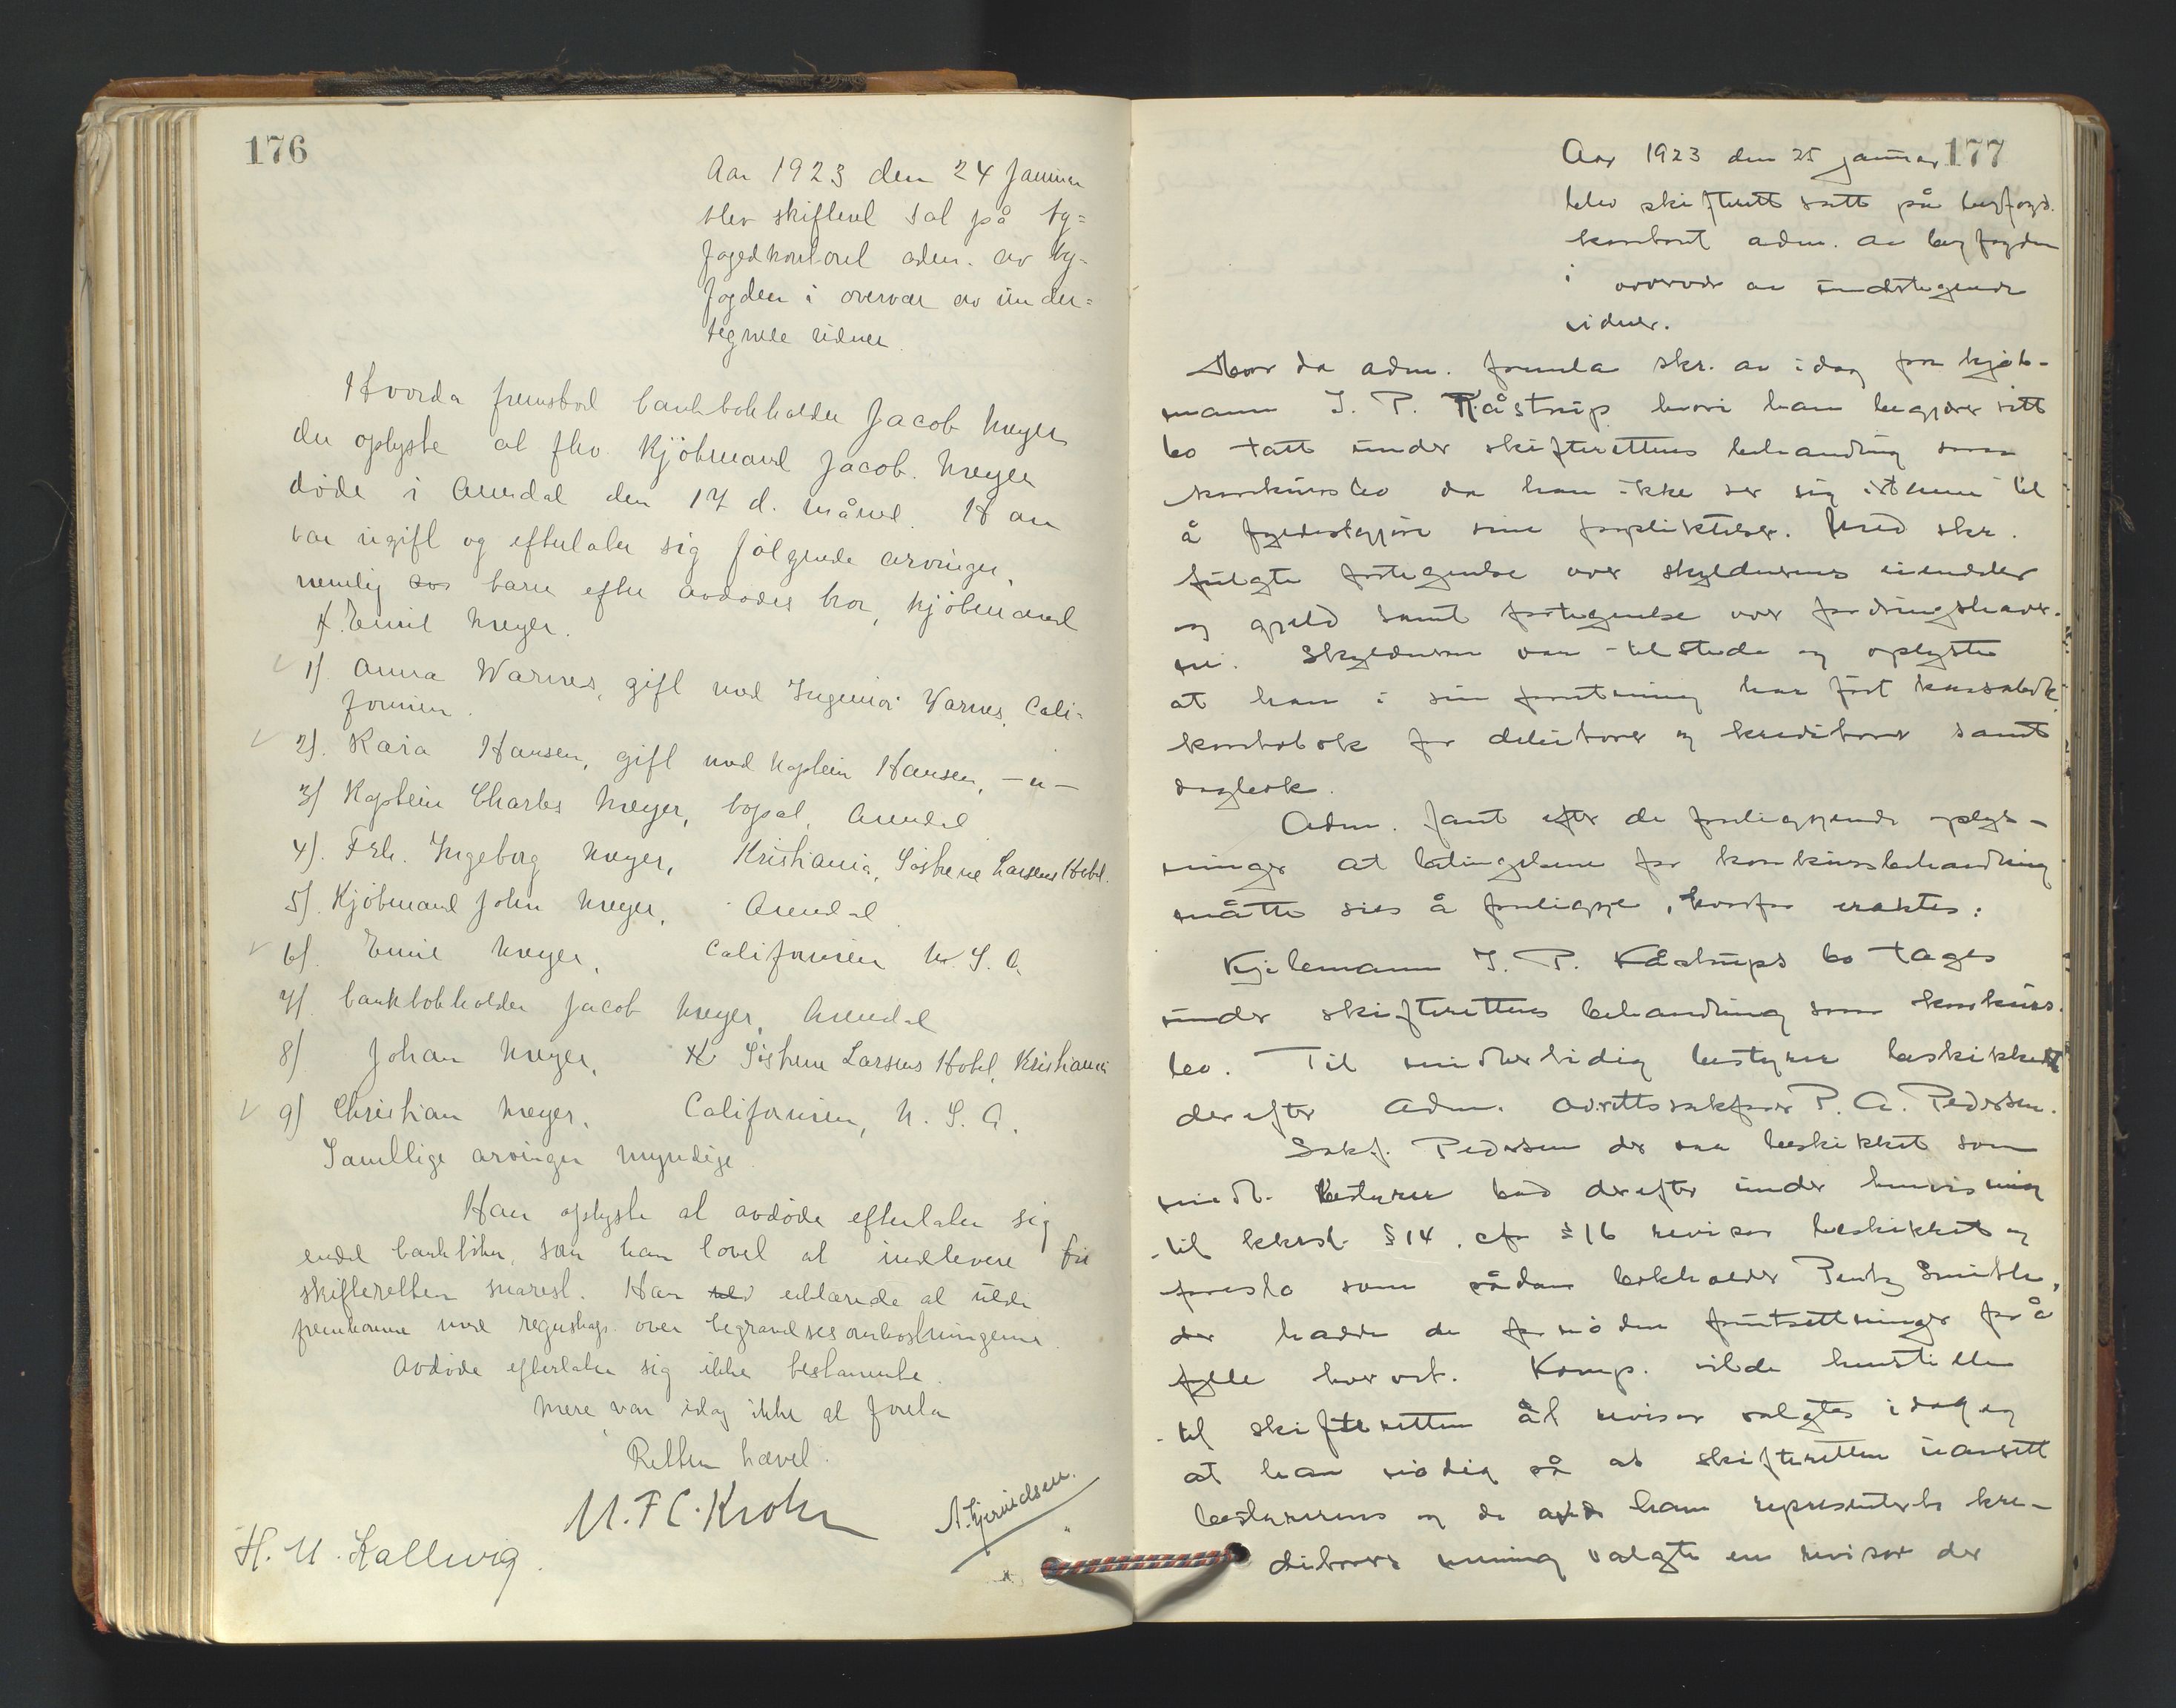 176
Aar 1923 den 24 Januar
blev skifteret sat på by=
fogedkontoret adm. av by-
fogden i overvær av under=
tegnede vidner.
Hvorda fremstod bankbokholder Jacob Meyer
der oplyste at fhv. Kjöbmand Jacob Meyer
døde i Arendal den 17 d. måned. Han
var ugift og efterlater sig følgende arvinger,
nemlig barn efter avdødes bror, kjöbmand
Emil Meyer.
1) Anna Warnes, gift med Ingeniør Warnes, Cali-
fornien.
2). Kaia Hansen, gift med Kaptein Hansen, -"-
3) Kaptein Charles Meyer, bopæl, Arendal
4). Frk. Ingeborg Meyer, Kristiania, Søstrene Larsens Hotel.
5). Kjöbmand John Meyer, Arendal
6). Emil Meyer, Californien U.S.A.
7). bankbokholder Jacob Meyer, Arendal
8) Johan Meyer, Søstrene Larsens Hotel, Kristiania
9) Christian Meyer, Californien, U.S.A.
Samtlige arvinger myndige.
Han oplyste at avdøde efterlater sig
endel bankbøker, som han lovet at indlevere til
skifteretten snarest. Han erklærede at ville
fremkomme med regnskap over begravelsesomkostningerne.
Avdøde efterlater sig ikke testamente.
Mere var idag ikke at forela
Retten hævet.
M. F C. Krohn
H. U. Kallevig.
177
Aar 1923 den 25 januar
blev skifterett satt på byfogd.
kontoret adm. av byfogden
i overvær av undertegnede
vidner.
Hvor da adm. fremla skr. av idag fra kjøb-
mann J. P. Kåstrup hvori han begjærer sitt
bo tatt under skifterettens behandling som
konkursbo da han ikke ser sig istann til
å fyldestgjøre sine forpliktelser. Med skr.
fulgte fortegnelse over skyldnerens eiendeler
og gjeld samt fortegnelse over fordringshaver-
ne. Skyldneren var tilstede og oplyste
at han i sin forretning har ført kassabok,
kontobok for debitorer og kreditorer samt
dagbok.
Adm. fant efter de foreliggende oplys-
ninger at betingelsene for konkursbehandling
måtte sies å foreligge, hvorfor eraktes:
Kjøbmann J. P. Kåstrups bo tages
under skifterettens behandling som konkurs-
bo. Til midlertidig bestyrer beskikket
derefter adm. overrettssakfører P. A. Pedersen.
Sakf. Pedersen der var beskikket som
midl. bestyrer bad derefter under henvisning
til kksl. § 14, cfr § 16 revisor beskikket og
foreslo som sådan bokholder Pentz Smith,
der hadde de fornødne forutsetninger for å
fylle hvervet. Komp. vilde henstille
til skifteretten at revisor valgtes idag og
at han nødig så at skifteretten uansett
bestyrerens og de av ham representerte kre-
ditorers mening valgte en revisor der